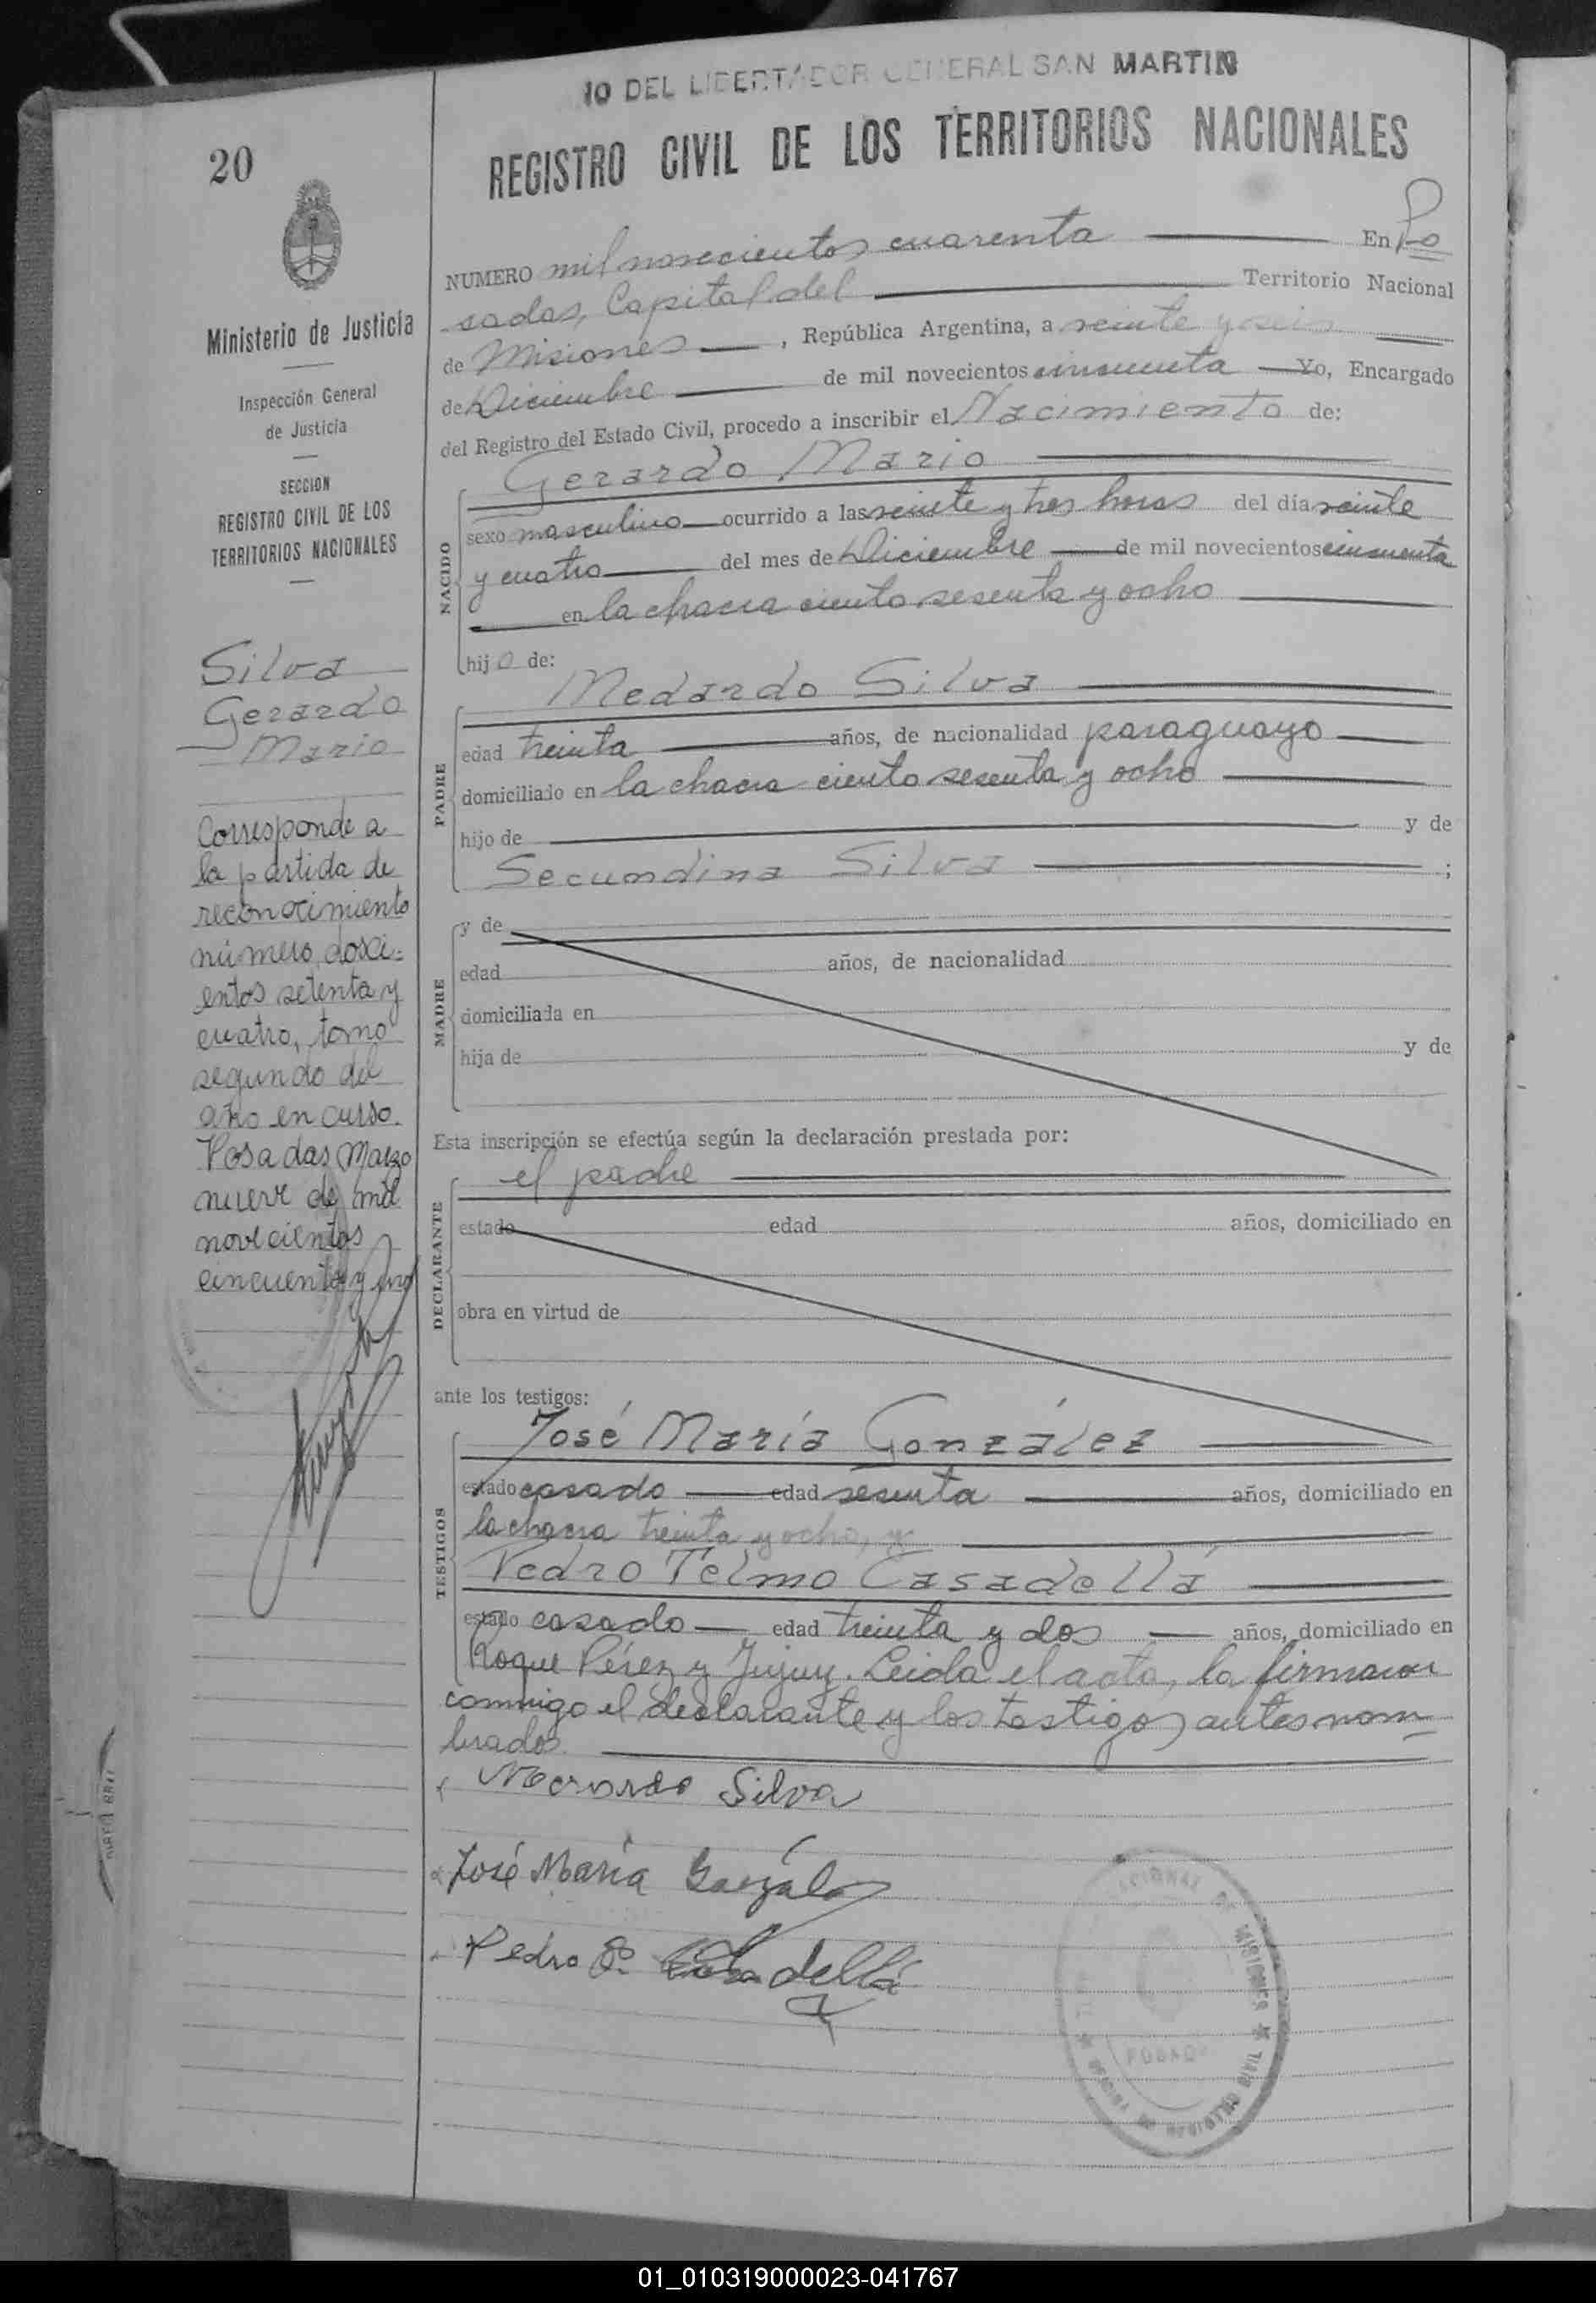 AÑO DEL LIBERTADOR GENERAL SAN MARTIN
REGISTRO CIVIL DE LOS TERRITORIOS NACIONALES
20
Ministerio de Justicia
Inspección General
de Justicia
SECCION
REGISTRO CIVIL DE LOS
TERRITORIOS NACIONALES
Silva
Gerardo
Mario
Corresponde a
la partida de
reconocimiento
número dosci=
entos setenta y
cuatro, tomo
segundo del
año en curso.
Posadas, Marzo
nueve de mil
novecientos
cincuenta y uno
NUMERO mil novecientos cuarenta En Po
sadas, Capital del Territorio Nacional
de Misiones, República Argentina, a veinte y seis
de Diciembre de mil novecientos cincuenta Yo, Encargado
del Registro del Estado Civil, procedo a inscribir el Nacimiento de:
Gerardo Mario
NACIDO
sexo masculino ocurrido a las veinte y tres horas del día veinte
y cuatro del mes de Diciembre de mil novecientos cincuenta
en la chacra ciento sesenta y ocho
hijo de:
Medardo Silva
PADRE
edad treinta años, de nacionalidad paraguayo
domiciliado en la chacra ciento sesenta y ocho
hijo de y de
Secundina Silva ;
MADRE
y de
edad años, de nacionalidad
domiciliada en
hija de y de
Esta inscripción se efectúa según la declaración prestada por:
el padre
DECLARANTE
estado edad años, domiciliado en
obra en virtud de
ante los testigos:
José María González
TESTIGOS
estado casado edad sesenta años, domiciliado en
la chacra treinta y ocho, y
Pedro Telmo Casadellá
estado casado edad treinta y dos años, domiciliado en
Roque Pérez y Jujuy. Leida el acta, la firmaron
conmigo el declarante y los testigos antes nom
brados.
Medardo Silva
José María González
Pedro Casadellá
NACIONAL DE MISIONES
POSADAS
01_010319000023-041767